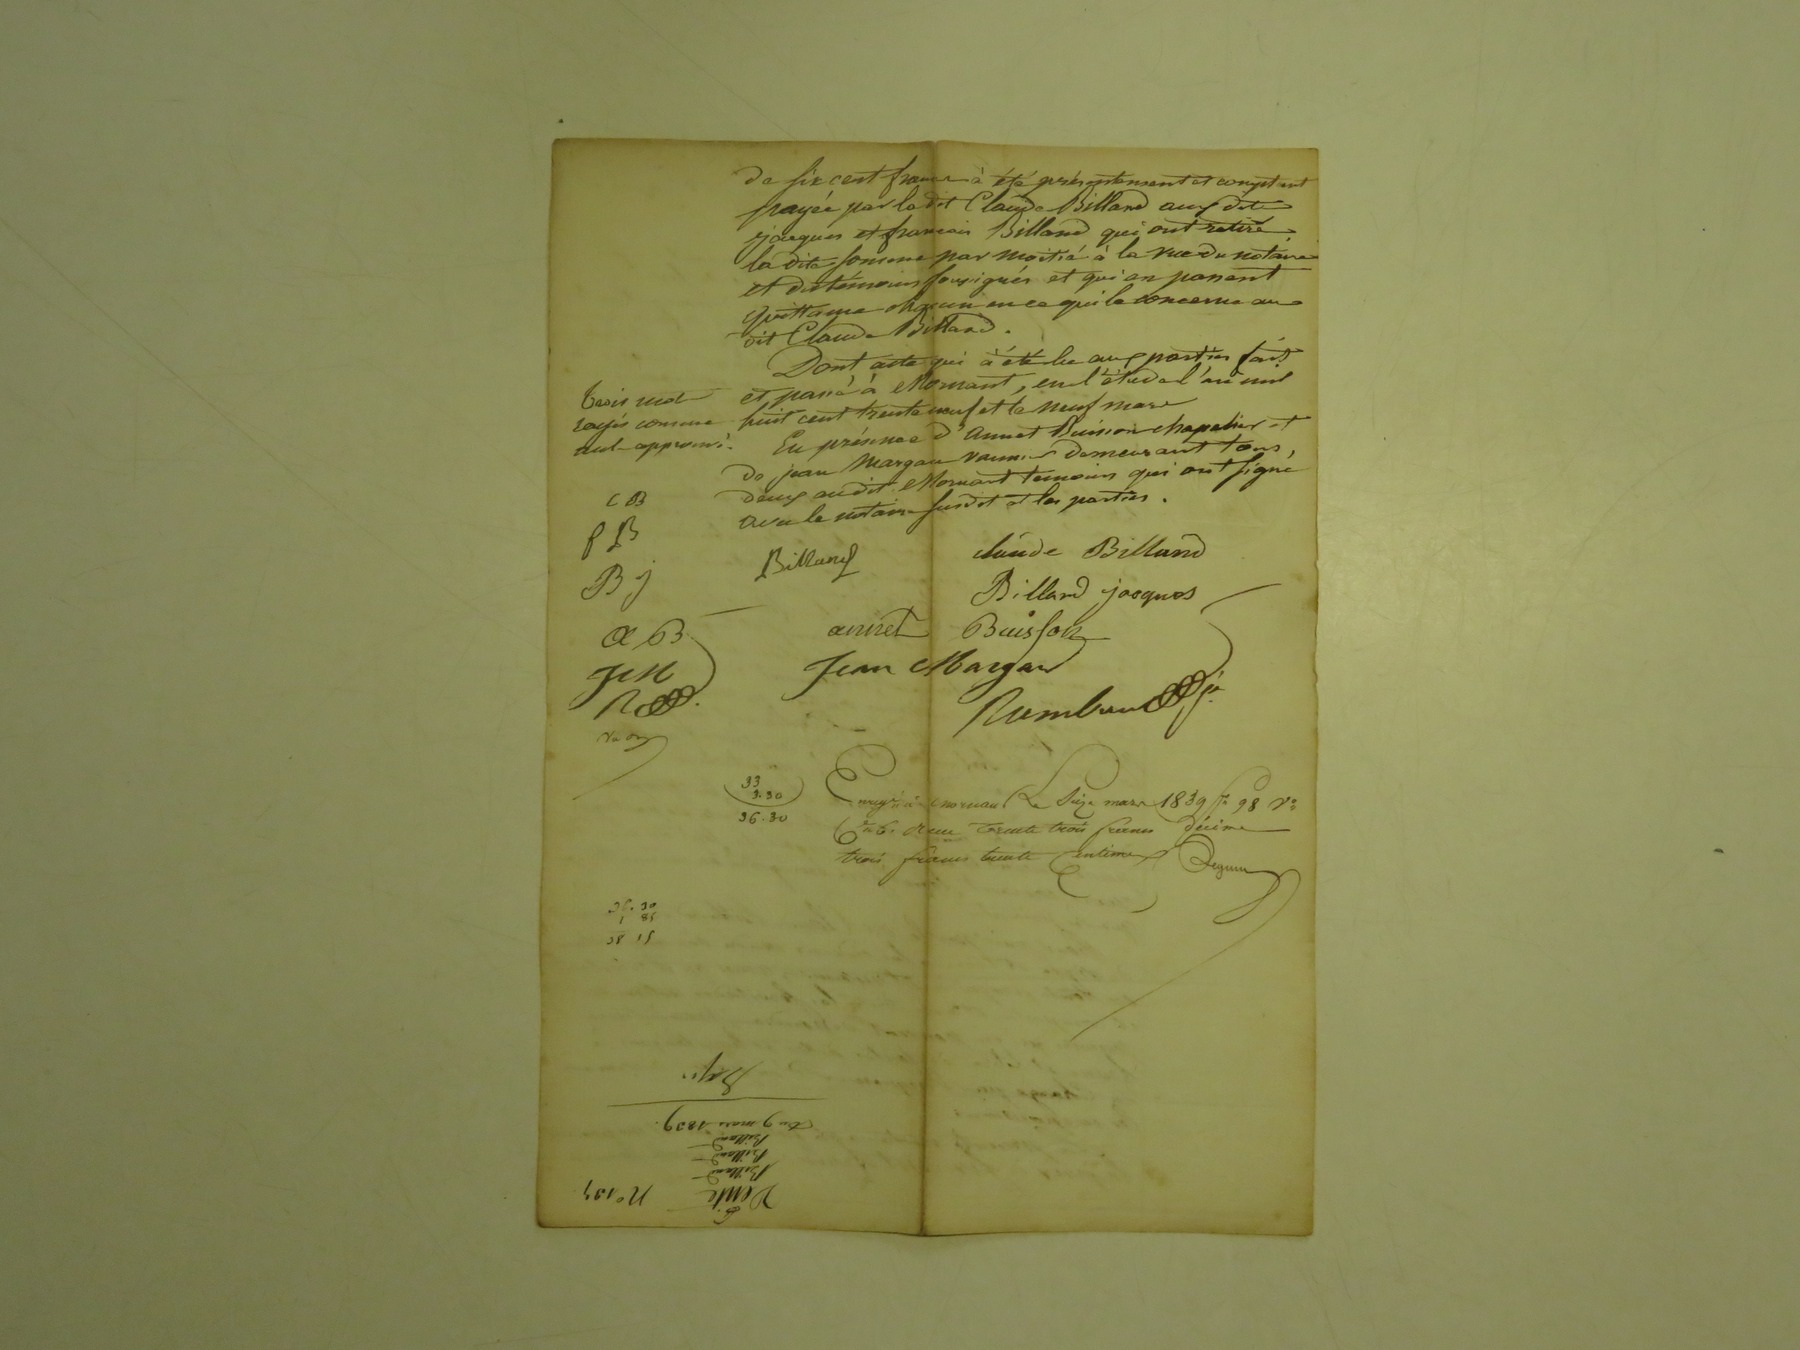 de six cent francs à été présentement et comptant
payée par le dit Claude Billard aux dits
jacques et francois Billard qui ont retiré
la dite somme par moitié à la vue du notaire
et des témoins soussignés et qui en passent
quittance chacun en ce qui le concerne au
dit Claude Billard.
Dont acte qui à été lu aux parties fait
et passé à Mornant, en l'étude l'an mil
huit cent trente neuf et le neuf mars
En présence d'annet Buisson chapelier et
de jean Margan demeurant tous
deux audit Mornant temoins qui ont signé
avec le notaire susdit et les parties.
trois mots
rayés comme
nul approuvé.
C B
f B
B j
a B
J M
R
Billard
claude Billard
Billard jacques
annet Buisson
Jean Margan
Rambaud jn
33
3.30
36.30
Enregré à mornant Le Seize mars 1839 fo 98 Vo
Co 6. reçu trente trois francs décime
trois francs trente Centimes
36.30
1 85
38 15
Vente
Billard
Billard
Billard
Du 9 mars 1839.